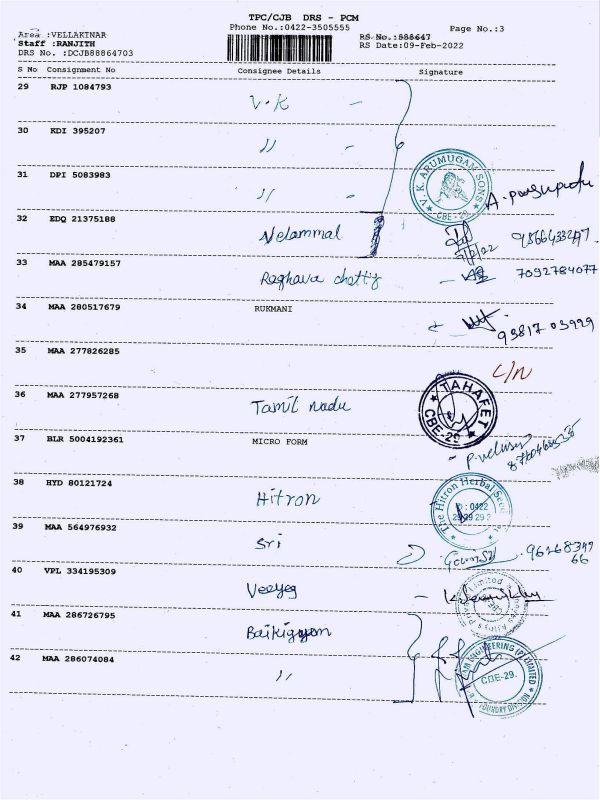 TPC/CJB DRS - PCM
Phone No.:0422-3505555
Page No.:3
Area :VELLAKINAR
Staff :RANJITH
DRS No. :DCJB88864703
RS No.:888647
RS Date:09-Feb-2022
S No Consignment No Consignee Details Signature
29 RJP 1084793 V.K -
30 KDI 395207 〃 -
31 DPI 5083983 〃 -
V. K. ARUMUGAN SONS
CBE - 29
32 EDQ 21375188 Velammal
33 MAA 285479157 Raghava chetty 7092784077
34 MAA 280517679 RUKMANI
93817 03929
35 MAA 277826285
C/N
36 MAA 277957268 Tamil nadu
TAHAFET
CBE-29
37 BLR 5004192361 MICRO FORM
38 HYD 80121724 Hitron
The Hitron Herbal Seed
: 0422
39 MAA 564976932 Sri
40 VPL 334195309 Veeyeg
41 MAA 286726795
42 MAA 286074084 〃
ENGINEERING (P) LIMITED
CBE-29.
FOUNDRY DIVISION